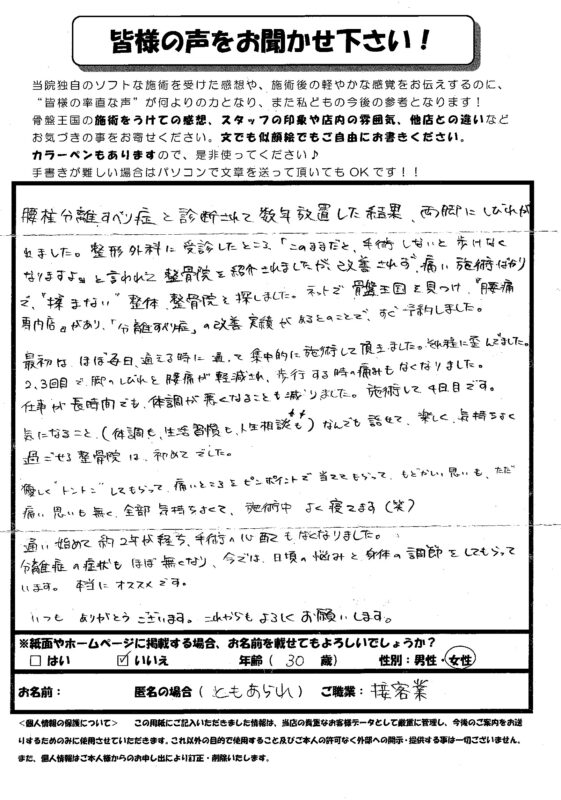 皆様の声をお聞かせ下さい！
当院独自のソフトな施術を受けた感想や、施術後の軽やかな感覚をお伝えするのに、
“皆様の率直な声”が何よりの力となり、また私どもの今後の参考となります！
骨盤王国の施術をうけての感想、スタッフの印象や店内の雰囲気、他店との違いなど
お気づきの事をお寄せください。文でも似顔絵でもご自由にお書きください。
カラーペンもありますので、是非使ってください♪
手書きが難しい場合はパソコンで文章を送って頂いてもOKです！！
腰椎分離すべり症と診断されて数年放置した結果、両脚にしびれが
れました。整形外科に受診したところ「このままだと、手術しないと歩けなく
なりますよ」と言われて整骨院を紹介されましたが、改善されず、痛い施術ばかり
で、“揉まない”整体、整骨院を探しました。ネットで骨盤王国を見つけ、『腰痛
専門店』があり、「分離すべり症」の改善実績があるとのことで、すぐ予約しました。
最初は、ほぼ毎日、通える時に通って集中的に施術して頂きました。 に歪んでました。
2、3回目で、脚のしびれと腰痛が軽減され、歩行する時の痛みもなくなりました。
仕事が長時間でも、体調が悪くなることも減りました。施術して4日目です。
気になること、(体調も、生活習慣も、人生相談も)なんでも話せて、楽しく、気持ちよく
過ごせる整骨院は、初めてでした。
優しく“トントン”してもらって、痛いところをピンポイントで当ててもらって、もどかしい思いも、ただ
痛い思いも無く、全部気持ちよくて、施術中よく寝てます(笑)
通い始めて約2年が経ち、手術の心配もなくなりました。
分離症の症状もほぼ無くなり、今では、日頃の悩みと身体の調節をしてもらって
います。本当にオススメです。
いつもありがとうございます。これからもよろしくお願いします。
※紙面やホームページに掲載する場合、お名前を載せてもよろしいでしょうか？
□ はい ☑ いいえ 年齢（ 30 歳） 性別：男性・女性
お名前： 匿名の場合（ともあられ） ご職業：接客業
＜個人情報の保護について＞ この用紙にご記入いただきました情報は、当店の貴重なお客様データとして厳重に管理し、今後のご案内をお送
りするためのみに使用させていただきます。これ以外の目的で使用すること及びご本人の許可なく外部への開示・提供する事は一切ございません。
また、個人情報はご本人様からのお申し出により訂正・削除いたします。